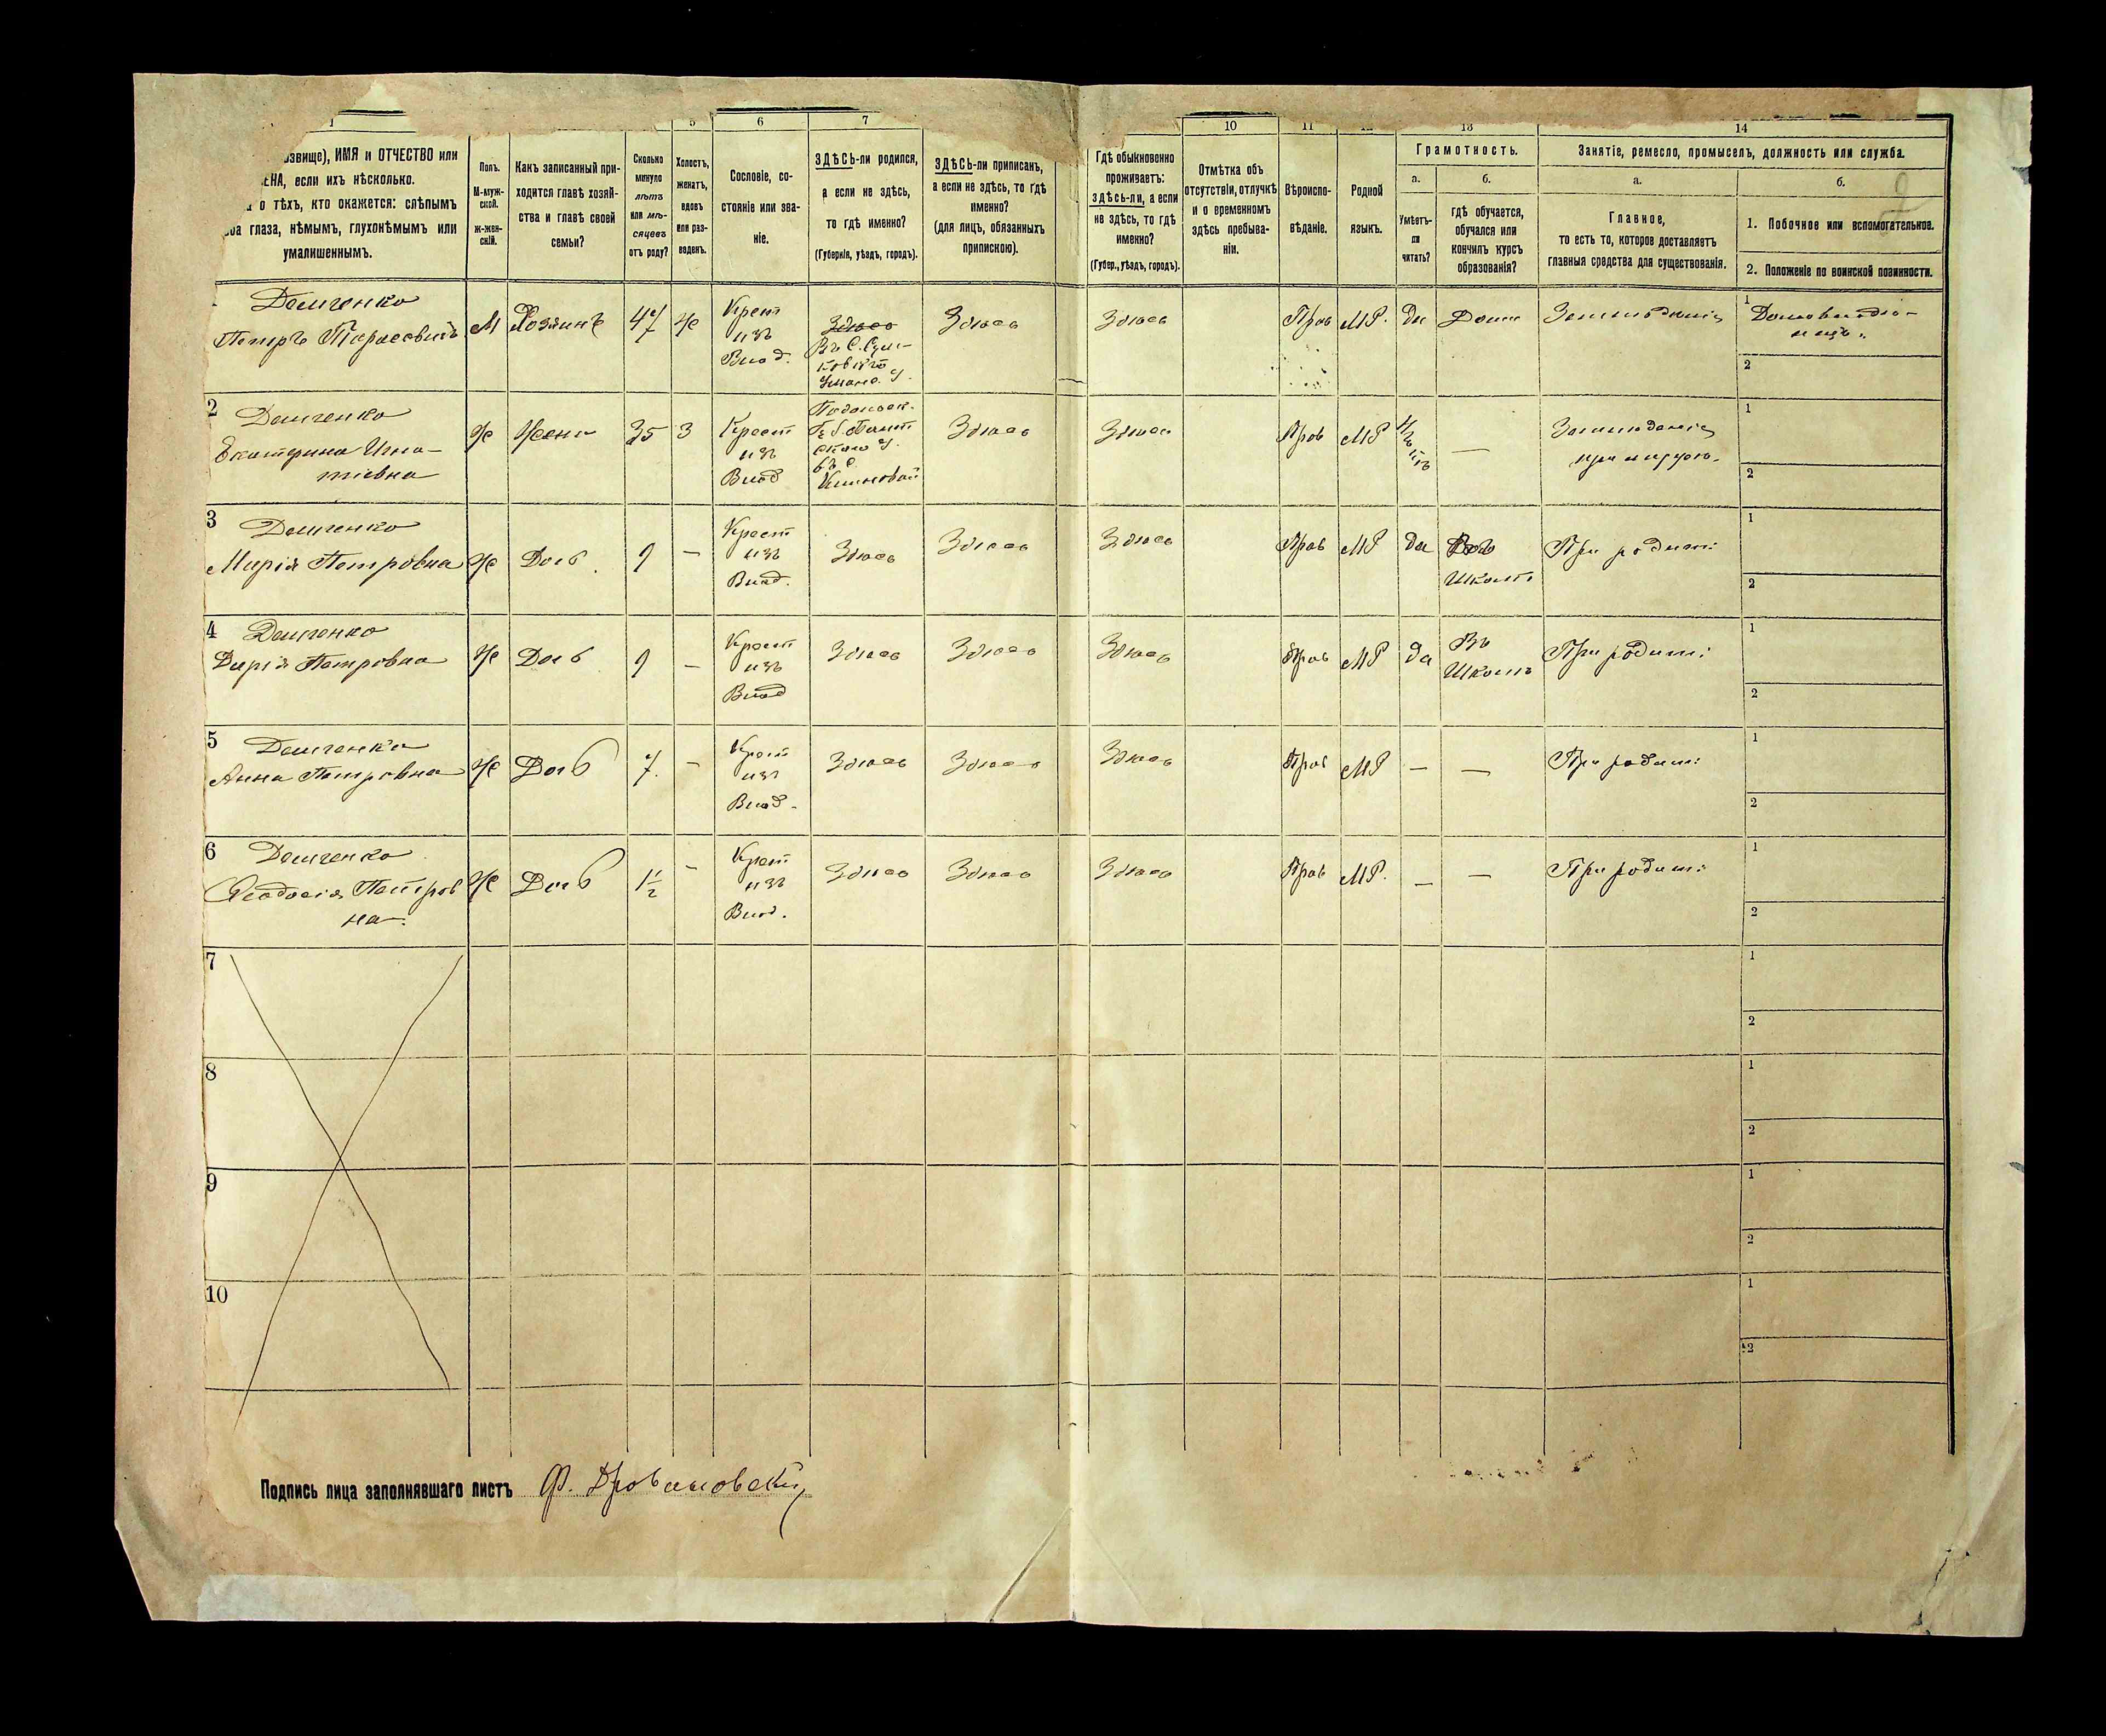 1 5 6 7 10 11 12 13 14
озвище), ИМЯ и ОТЧЕСТВО или
ЕНА, если ихъ нѣсколько.
о тѣхъ, кто окажется: слѣпымъ
оба глаза, нѣмымъ, глухонѣмымъ или
умалишеннымъ.
Полъ.
М-муж-
ской.
ж-жен-
скій.
Какъ записанный при-
ходится главѣ хозяй-
ства и главѣ своей
семьи?
Сколько
минуло
лѣтъ
или мѣ-
сяцевъ
отъ роду?
Холостъ,
женатъ,
вдовъ
или раз-
веденъ.
Сословіе, со-
стояніе или зва-
ніе.
ЗДѢСЬ-ли родился,
а если не здѣсь,
то гдѣ именно?
(Губернія, уѣздъ, городъ).
ЗДѢСЬ-ли приписанъ,
а если не здѣсь, то гдѣ
именно?
(для лицъ, обязанныхъ
припискою).
Гдѣ обыкновенно
проживаетъ:
здѣсь-ли, а если
не здѣсь, то гдѣ
именно?
(Губер., уѣздъ, городъ).
Отмѣтка объ
отсутствіи, отлучкѣ
и о временномъ
здѣсь пребыва-
ніи.
Вѣроиспо-
вѣданіе.
Родной
языкъ.
Грамотность.
а.
Умѣетъ-
ли
читать?
б.
гдѣ обучается,
обучался или
кончилъ курсъ
образованія?
Занятіе, ремесло, промыселъ, должность или служба.
а.
Главное,
то есть то, которое доставляетъ
главныя средства для существованія.
б.
2
1. Побочное или вспомогательное.
2. Положеніе по воинской повинности.
Демченко
Петръ Тарасовичъ
М Хозяинъ 47 Ж
Крест
изъ
Влад.
Здѣсь
Въ С.
Уман. У.
Здѣсь Здѣсь Прав МР. Да Дома Земледѣліе
1 Домовладѣ-
лецъ.
2
2 Демченко
Екатерина Игна-
тіевна
Ж Жена 35 З
Крест
изъ
Влад
Подольск.
Г.
У.
въ с.
Здѣсь Здѣсь Прав МР — Земледѣліе
при мужѣ.
1
2
3 Демченко
Марія Петровна
Ж Дочь 9 —
Крест
изъ
Влад.
Здѣсь Здѣсь Здѣсь Прав МР Да Въ
Школѣ
При родит:
1
2
4 Демченко
Дарія Петровна
Ж Дочь 9 —
Крест
изъ
Влад
Здѣсь Здѣсь Здѣсь Прав МР Да Въ
Школѣ
При родит:
1
2
5 Демченко
Анна Петровна
Ж Дочь 7. —
Крест
изъ
Влад.
Здѣсь Здѣсь Здѣсь Прав МР — — При родит:
1
2
6 Демченко
Ѳеодосія Петров
на.
Ж Дочь 1½ —
Крест
изъ
Влад.
Здѣсь Здѣсь Здѣсь Прав МР. — — При родит:
1
2
7
1
2
8
1
2
9
1
2
10
1
2
Подпись лица заполнявшаго листъ Ф.